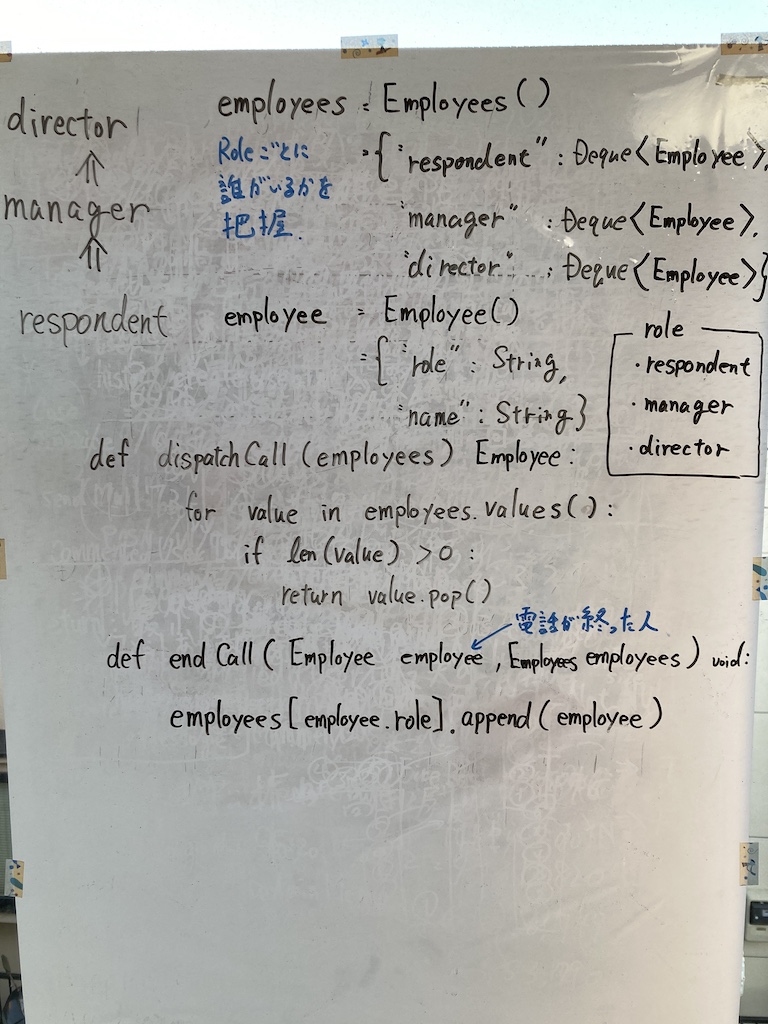 director
⇑
manager
⇑
respondent
employees = Employees()
Roleごとに
誰がいるかを
把握.
={"respondent" : Deque<Employee>,
"manager" : Deque<Employee>,
"director" : Deque<Employee>}
employee = Employee()
={"role" : String,
"name" : String}
role
・respondent
・manager
・director
def dispatchCall (employees) Employee:
for value in employees.values():
if len(value) >0 :
return value.pop()
電話が終った人
def endCall( Employee employee , Employees employees) void:
employees[employee.role].append(employee)